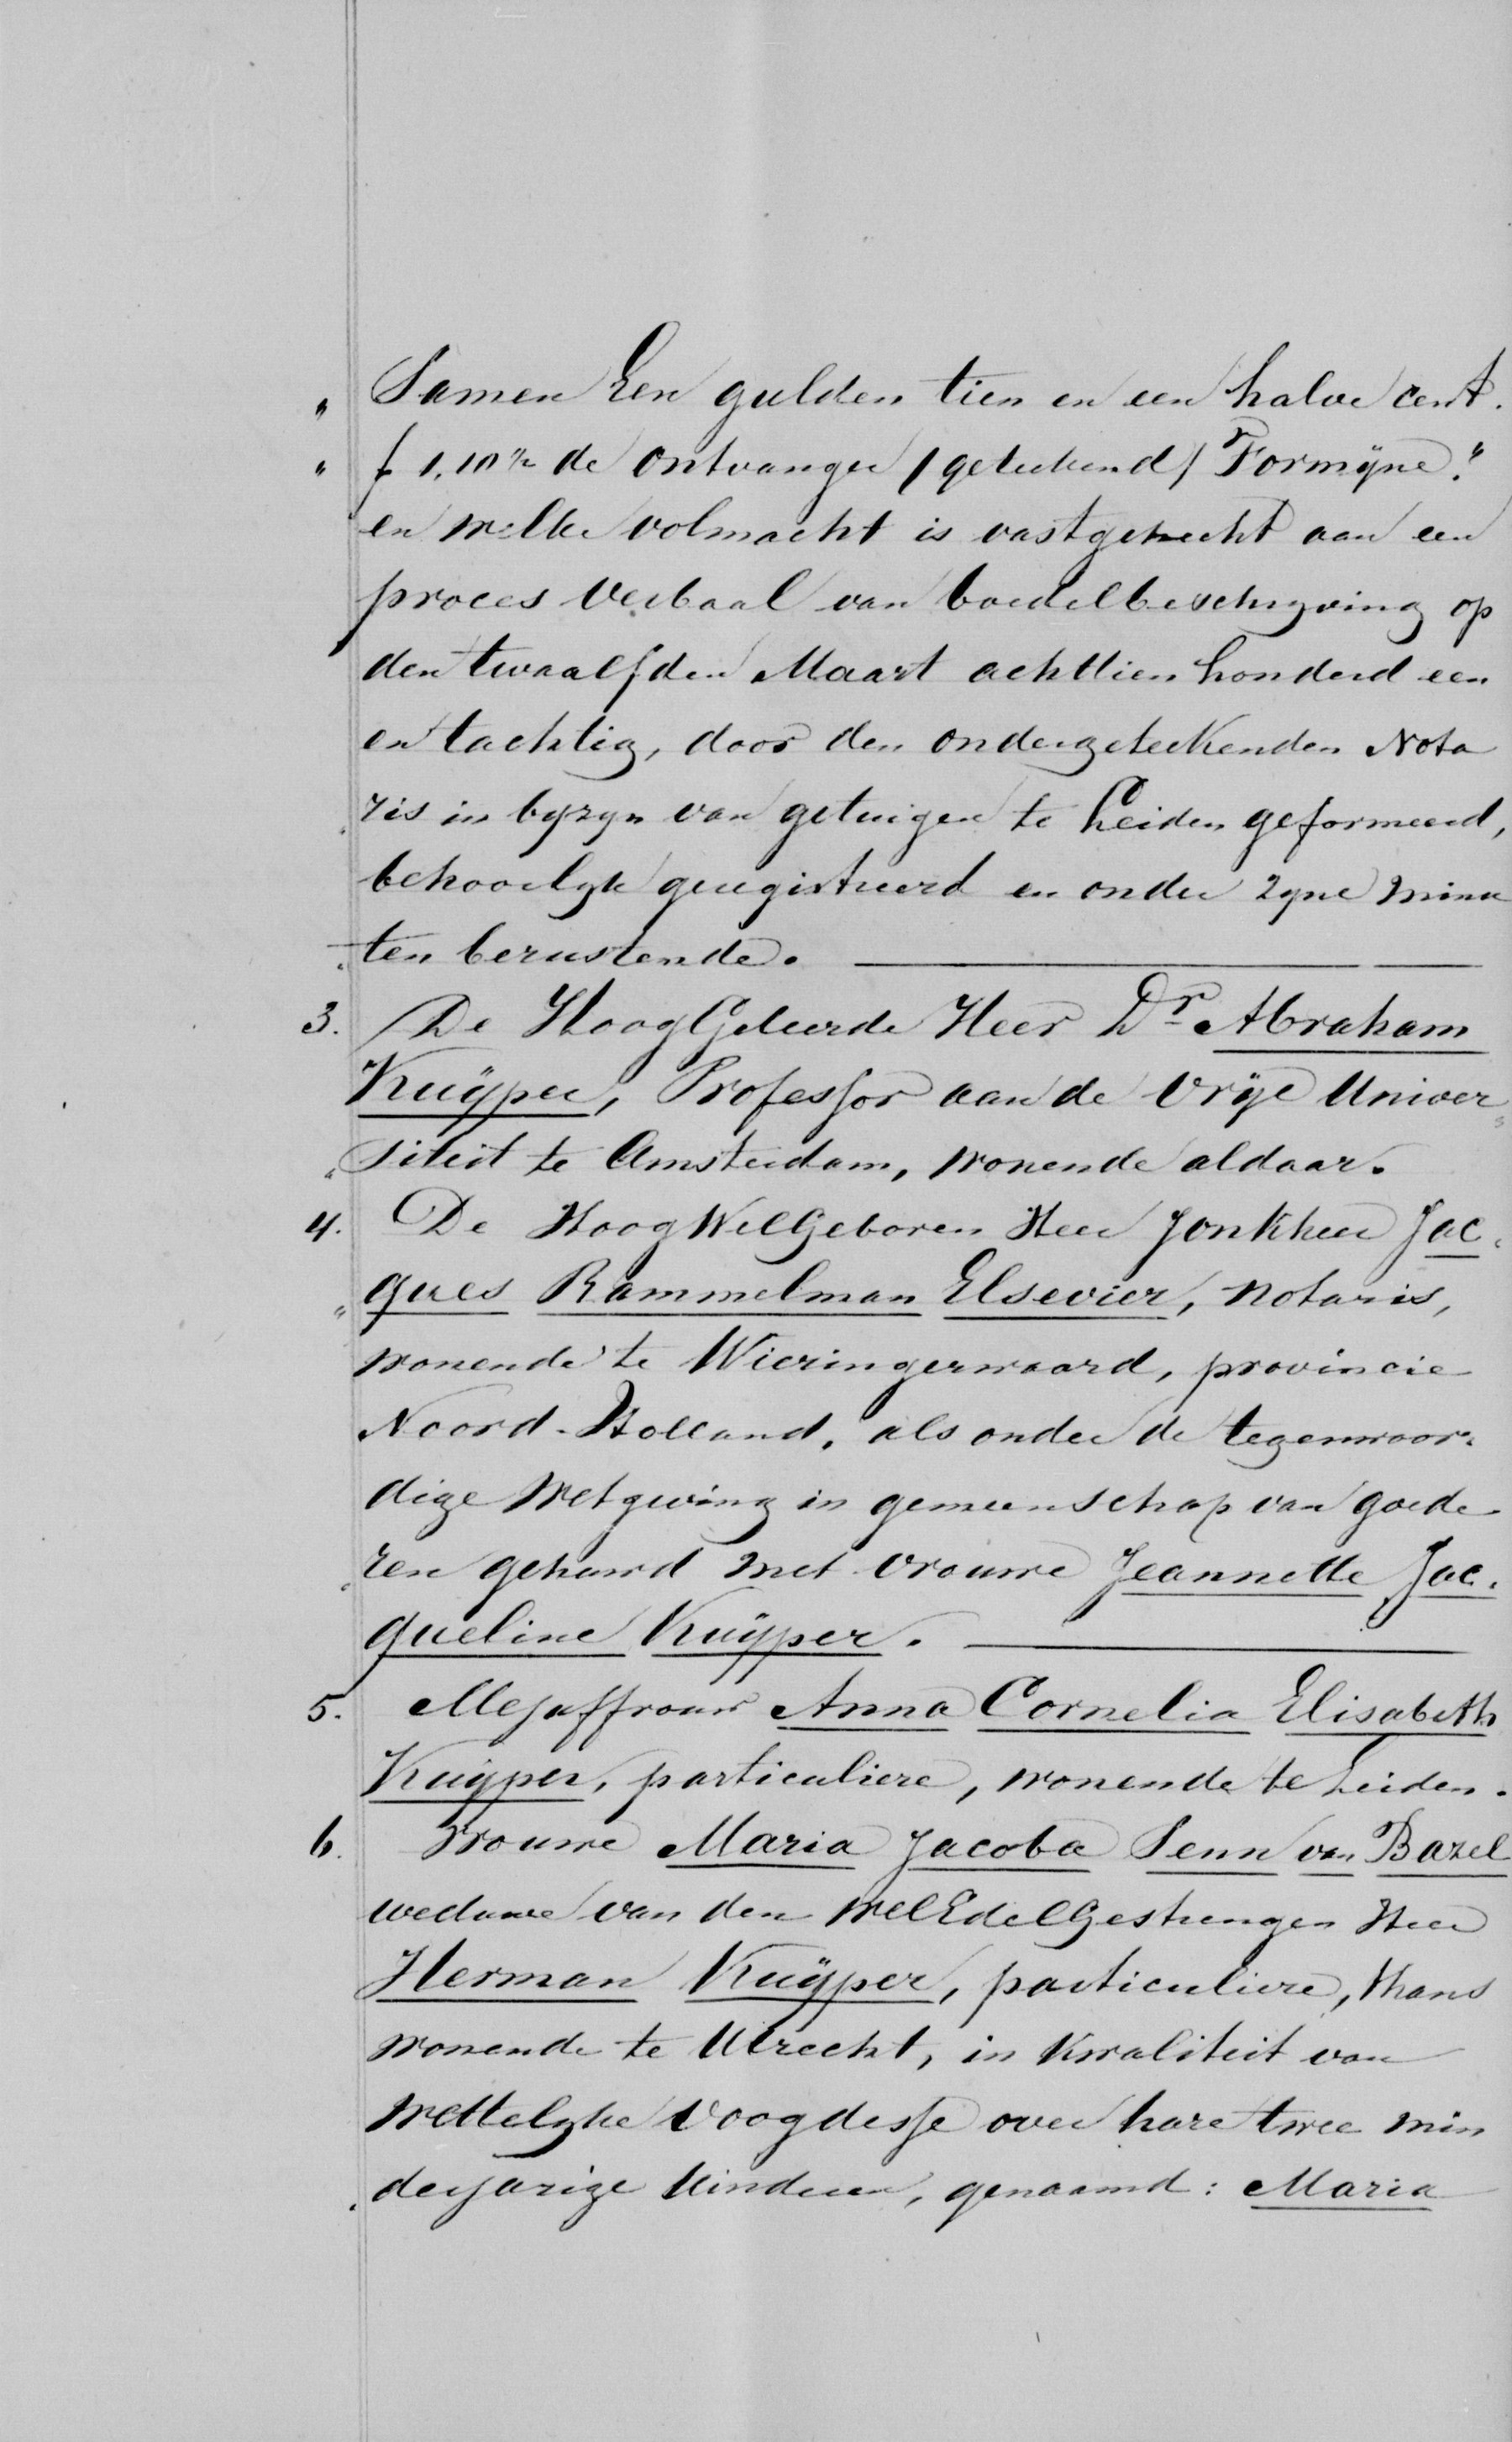 " Samen Een gulden tien en een halve cent.
" f 1.10½ de Ontvanger /geteekend/ Formijne."
en welke volmacht is vastgehecht aan een
proces verbaal van boedelbeschryving op
den twaalfden Maart achttien honderd een
en tachtig, door den ondergeteekenden Nota
ris in byzyn van getuigen te Leiden geformeerd,
behoorlyk geregistreerd en onder zyne minu
ten berustende.
3. De HoogGeleerde Heer Dr Abraham
Kuÿper, Professor aan de Vrÿe Univer
siteit te Amsterdam, wonende aldaar.
4. De HoogWelGeboren Heer Jonkheer Jac
ques Rammelman Elsevier, notaris,
wonende te Wieringerwaard, provincie
Noord-Holland, als onder de tegenwoor
dige wetgeving in gemeenschap van goede
ren gehuwd met vrouwe Jeannette Jac
queline Kuÿper.
5. Mejuffrouw Anna Cornelia Elisabeth
Kuÿper, particuliere, wonende te Leiden.
6. Vrouwe Maria Jacoba Senn van Bazel
weduwe van den WelEdelGestrengen Heer
Herman Kuÿper, particuliere, thans
wonende te Utrecht, in kwaliteit van
wettelyke voogdesse over hare twee min
derjarige kinderen, genaamd: Maria